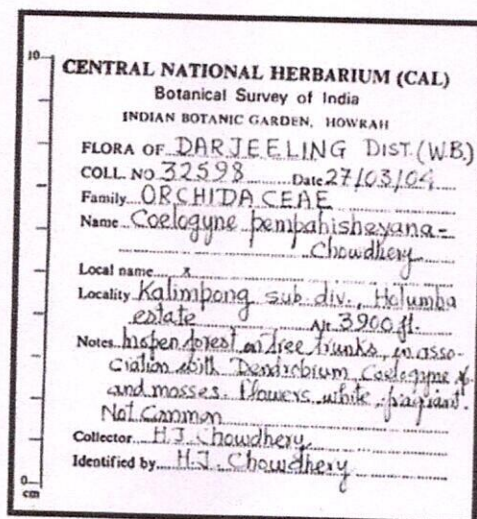 10
CENTRAL NATIONAL HERBARIUM (CAL)
Botanical Survey of India
INDIAN BOTANIC GARDEN, HOWRAH
FLORA OF DARJEELING DIST. (W.B.)
COLL. NO 32598 Date 27/03/04
Family ORCHIDACEAE
Name Coelogyne pempahisheyana-
Chowdhery
Local name x
Locality Kalimpong sub-div., Holumba
estate Alt 3900 ft.
Notes In open forest on tree trunks, in asso-
ciation with Dendrobium, Coelogyne &
and mosses. Flowers white, fragrant.
Not Common
Collector H.J. Chowdhery
Identified by H.J. Chowdhery
0
cm